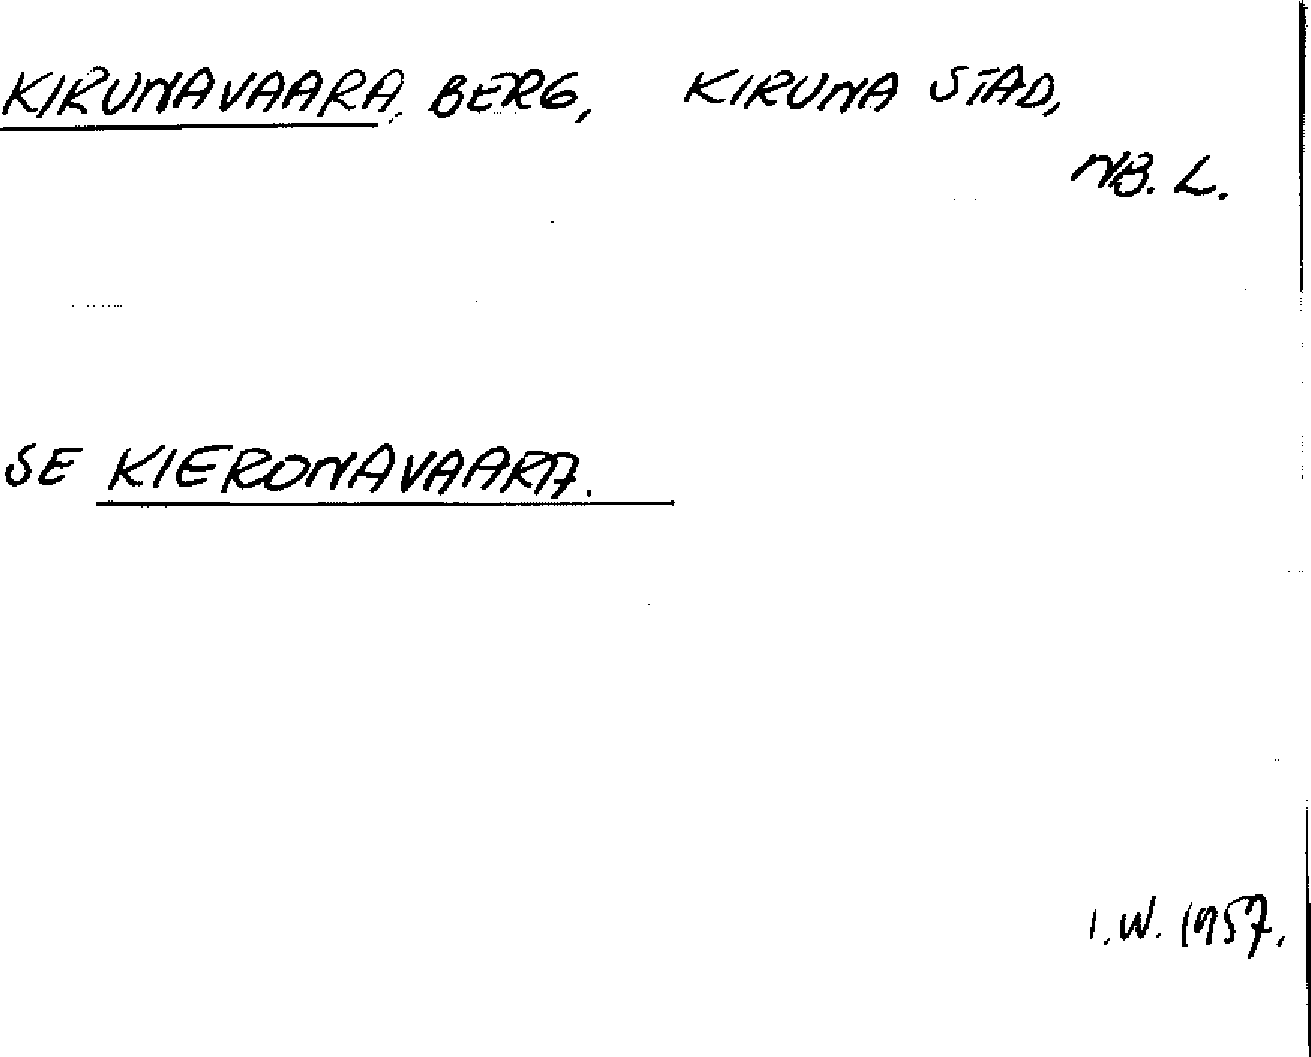 KIRUNAVAARA, BERG, KIRUNA STAD,
NB. L.
SE KIERONAVAARA.
I.W. 1957.